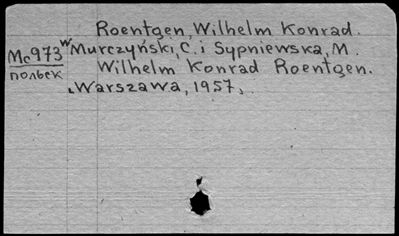 Roentgen, Wilhelm Konrad.
Mc973 w Murczyński, C. i Sypniewska, M.
польск Wilhelm Konrad Roentgen.
Warszawa, 1957.